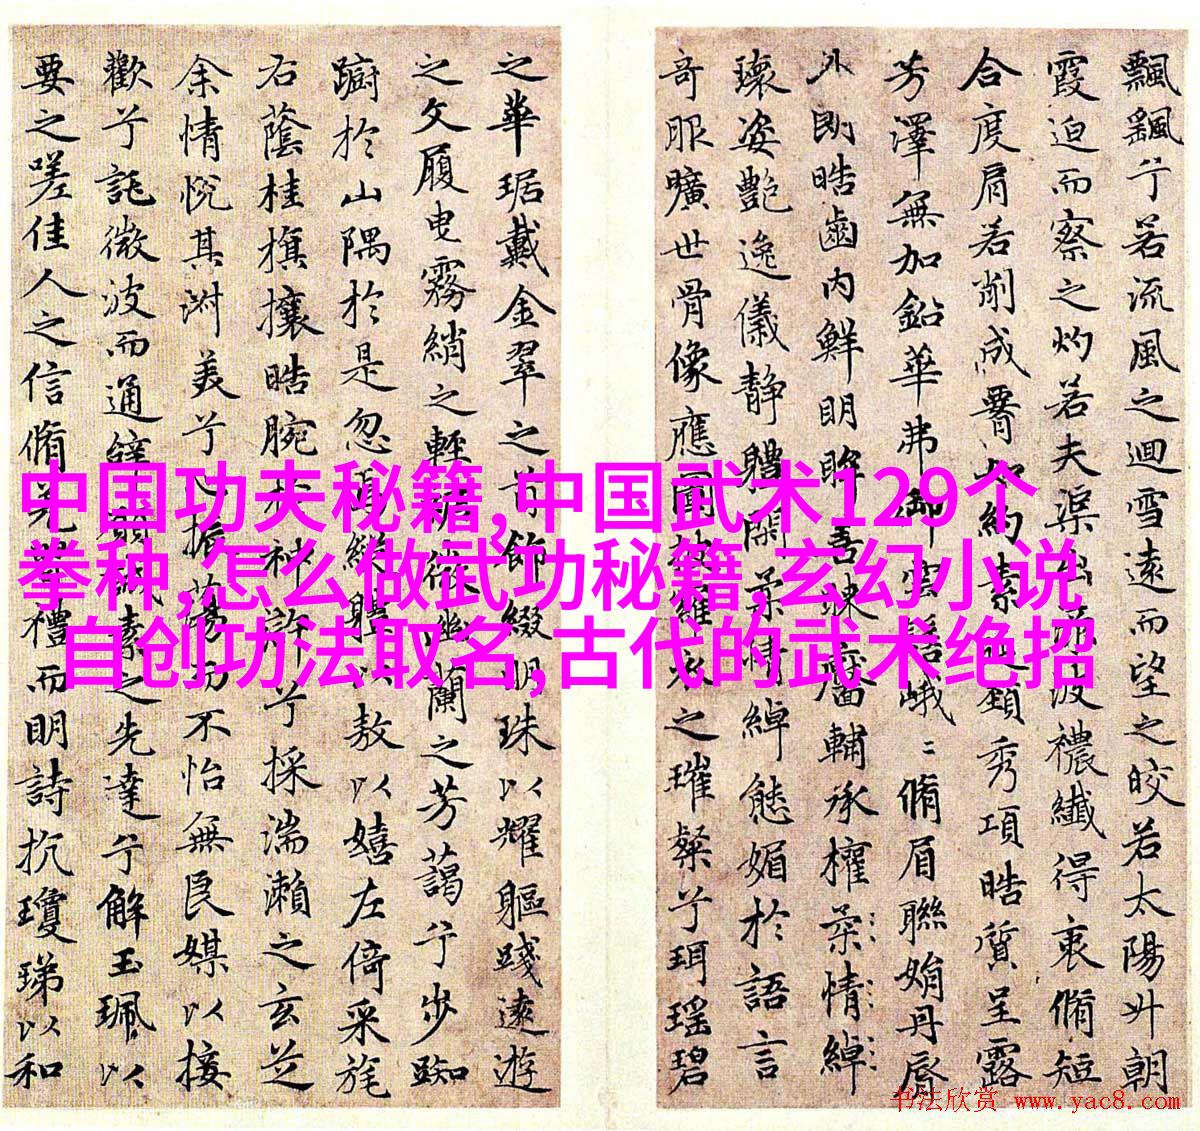 飄颻兮若流風之迴雪遠而望之皎若太陽升朝
霞迫而察之灼若夫渠出渌波襛纖得衷脩短
合度肩若削成腰如約素延頸秀項皓質呈露
芳澤無加鉛華弗御雲髻峨〻脩眉聯娟丹唇
外朗皓齒內鮮明眸善睞靨輔承權柔情綽
瓌姿艷逸儀靜體閑柔情綽態媚於語言
奇服曠世骨像應圖披羅衣之璀粲兮珥瑤碧
之華琚戴金翠之首飾綴明珠以耀軀踐遠遊
之文履曳霧綃之輕裾微幽蘭之芳藹兮步踟
躕於山隅於是忽焉縱體以敖以嬉左倚采旄
右蔭桂旗攘皓腕於神滸兮採湍瀨之玄芝
余情悅其淑美兮心振蕩而不怡無良媒以接
歡兮託微波而通辭願誠素之先達兮解玉珮以
要之嗟佳人之信脩羌習禮而明詩抗瓊珶以和
中国功夫秘籍,中国武术129个
拳种,怎么做武功秘籍,玄幻小说
自创功法取名,古代的武术绝招
书法欣赏 www.yac8.com